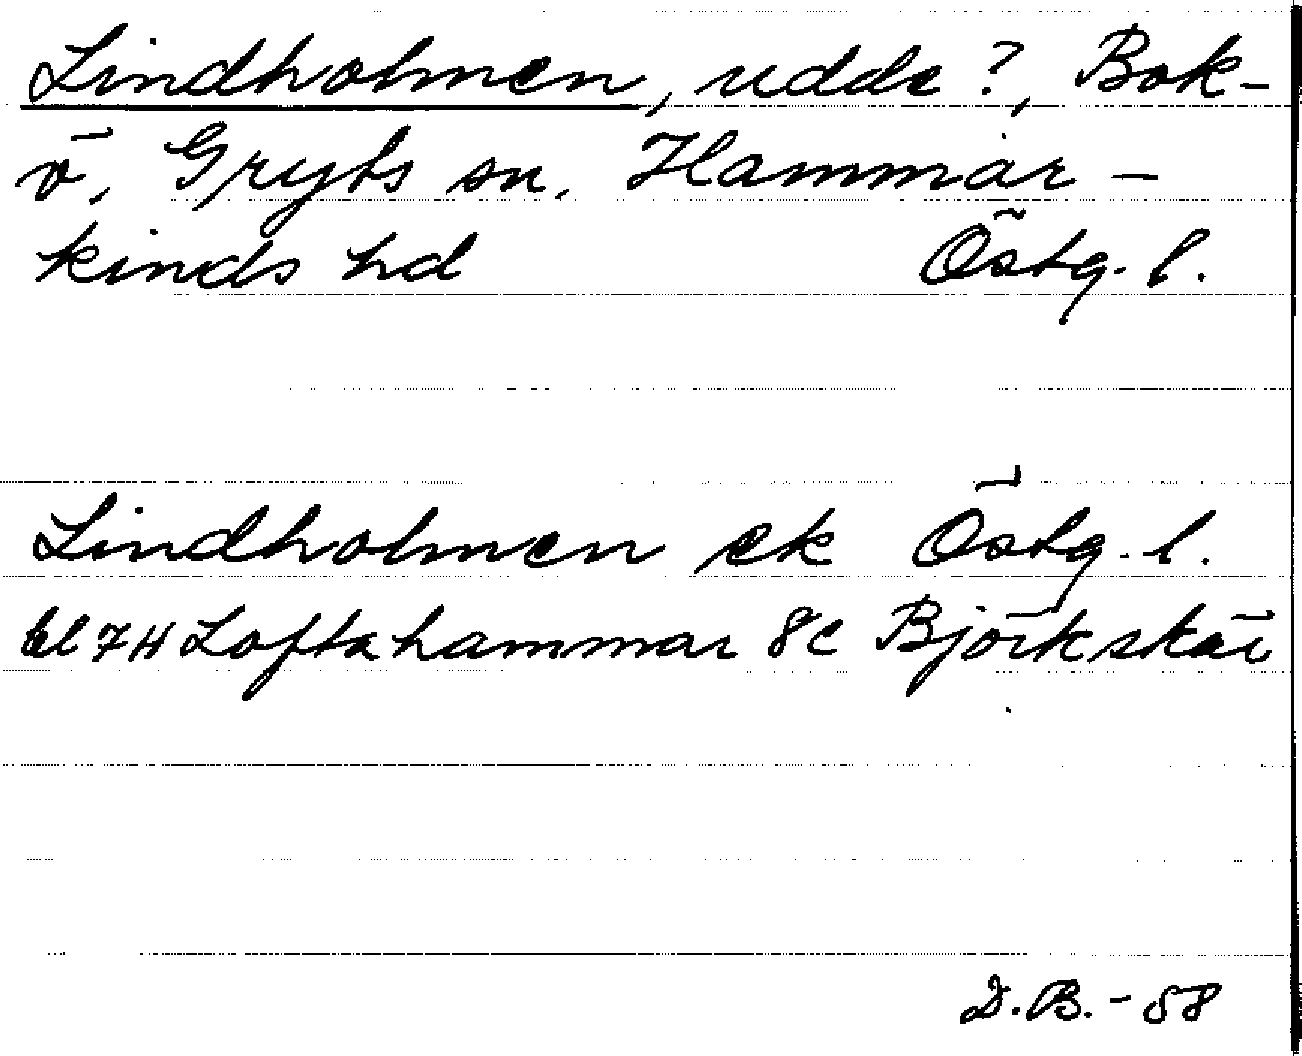 Lindholmen, udde?, Bok-
ö, Gryts sn. Hammar-
kinds hd Östg. l.
Lindholmen ek Östg. l.
bl 7H Loftahammar 8c Björkskär
D.B. - 58